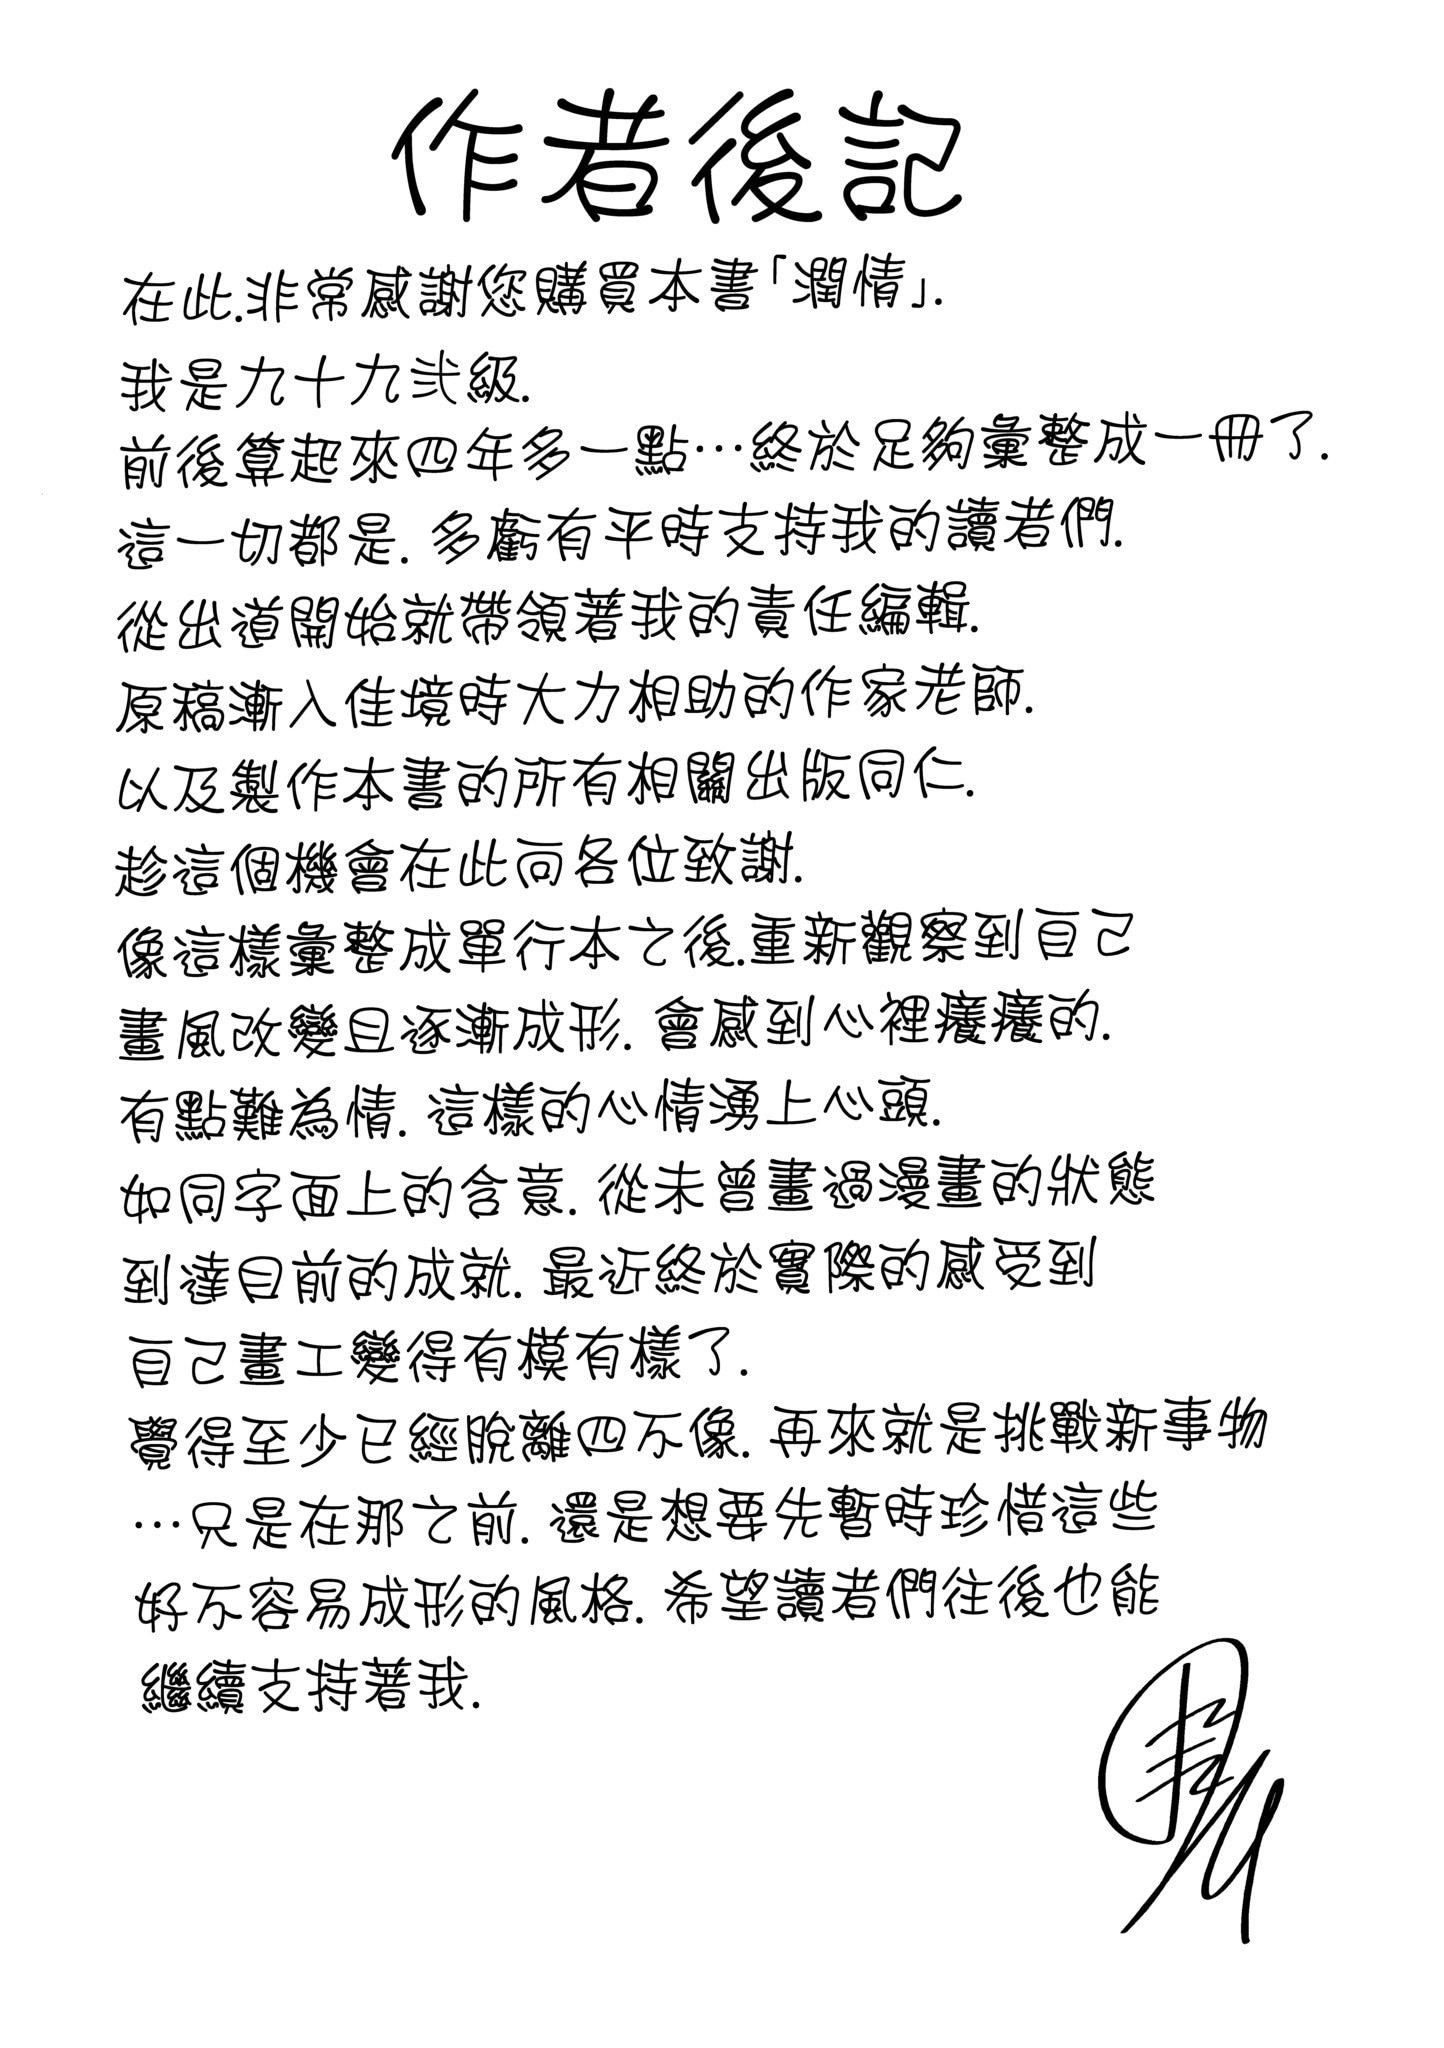 作者後記
在此.非常感謝您購買本書「潤情」.
我是九十九弐級.
前後算起來四年多一點…終於足夠彙整成一冊了.
這一切都是.多虧有平時支持我的讀者們.
從出道開始就帶領著我的責任編輯.
原稿漸入佳境時大力相助的作家老師.
以及製作本書的所有相關出版同仁.
趁這個機會在此向各位致謝.
像這樣彙整成單行本之後.重新觀察到自己
畫風改變且逐漸成形.會感到心裡癢癢的.
有點難為情.這樣的心情湧上心頭.
如同字面上的含意.從未曾畫過漫畫的狀態
到達目前的成就.最近終於實際的感受到
自己畫工變得有模有樣了.
覺得至少已經脫離四不像.再來就是挑戰新事物
…只是在那之前.還是想要先暫時珍惜這些
好不容易成形的風格.希望讀者們往後也能
繼續支持著我.